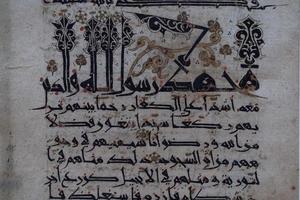 محمد رسول الله والذين
معه اشدا على الكفار رحما بينهم تر
يهم ركعا سجدا يبتغون فضلا
من الله ورضوانا سيماهم في وجو
ههم من اثر السجود ذلك مثلهم في
التورية ومثلهم في الانجيل كزرع اخر
ج شطاه فازره فاستغلظ